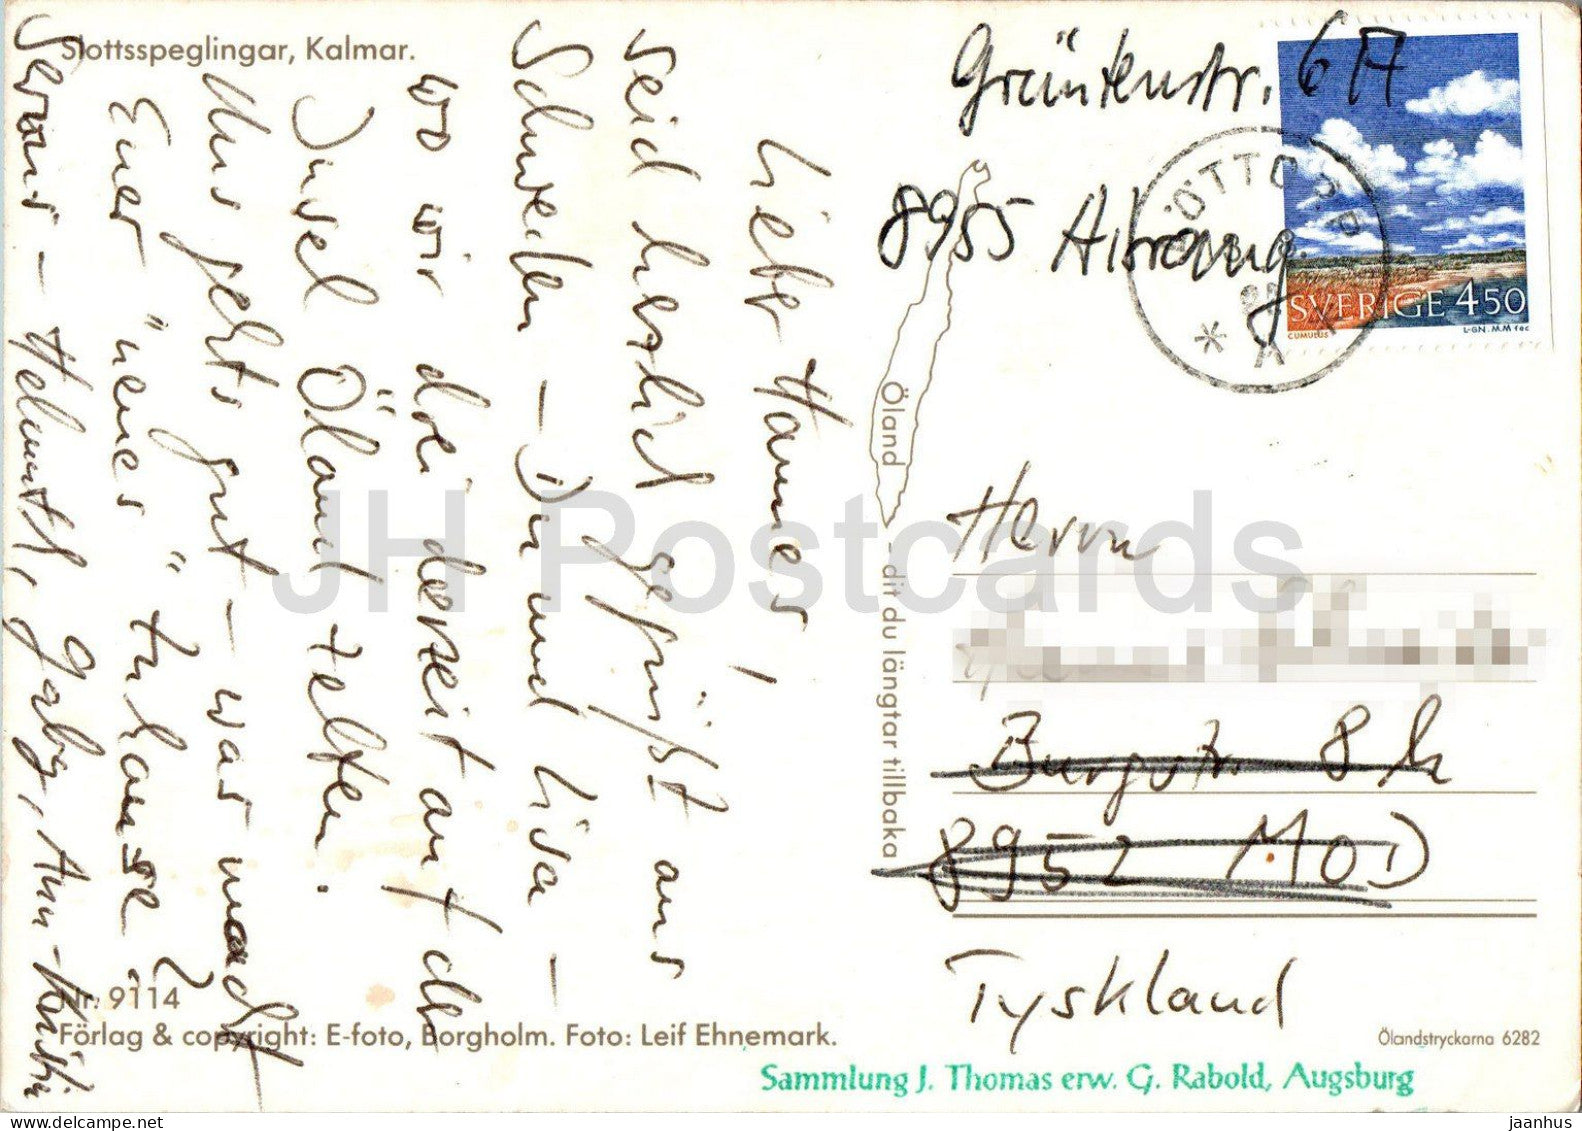 Slottsspeglingar, Kalmar.
Lieber Hannes!
seid herzlich gegrüßt aus
Schweden - Du und Lisa -
wo wir drei derzeit auf der
Insel Öland zelten.
Uns geht's gut - was macht
Euer "neues" Zuhause?
Servus - Helmuth, Gaby, Ann-Kristin
Nr. 9114
Förlag & copyright: E-foto, Borgholm. Foto: Leif Ehnemark.
Öland
- dit du längtar tillbaka
Grüntenstr. 6A
8955 Aitrang
SVERIGE 450
CUMULUS
L-GN. M.M fec
KÖTTORP
Herrn
Burgstr. 8
8952 MOD
Tyskland
Ölandstryckarna 6282
Sammlung J. Thomas erw. G. Rabold, Augsburg
JH Postcards
jaanhus